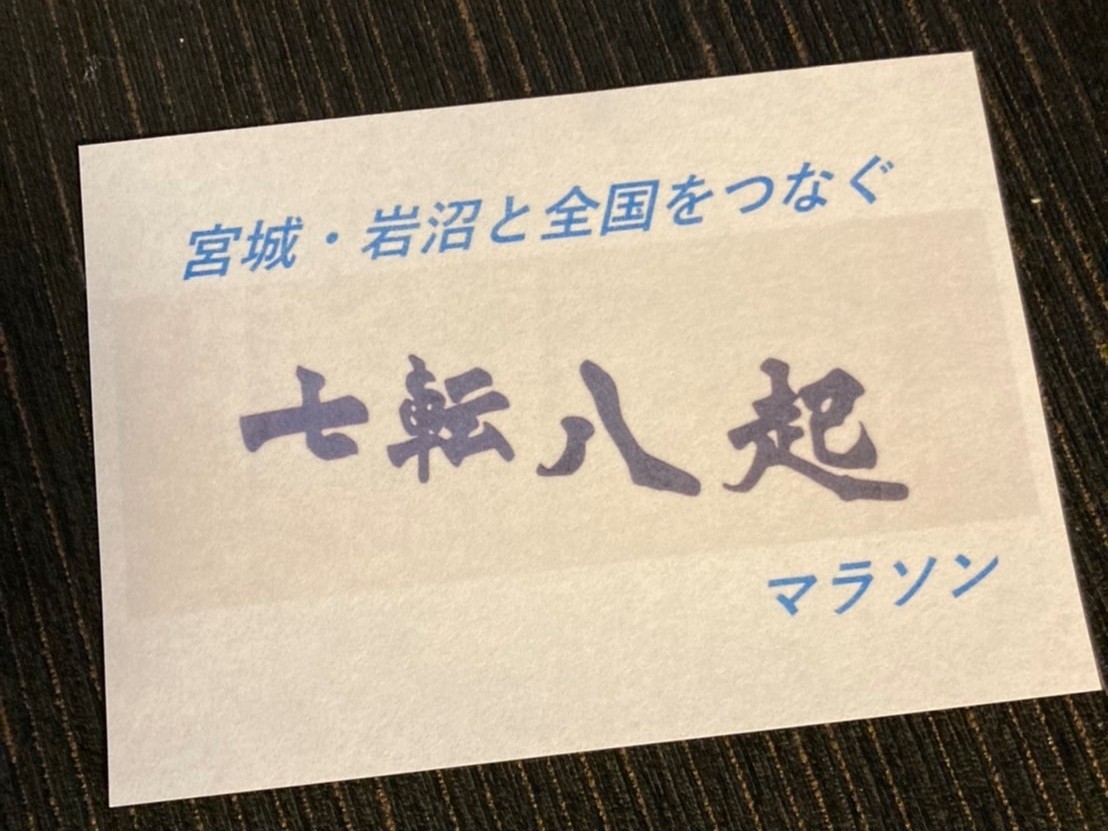 宮城・岩沼と全国をつなぐ
七転八起
マラソン